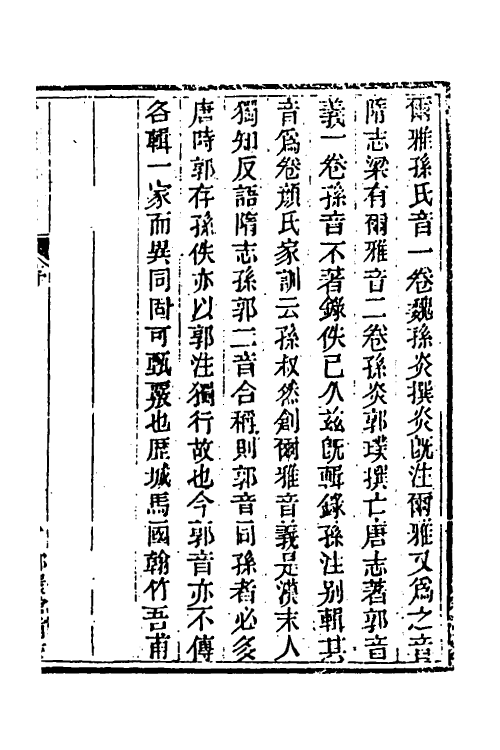 爾雅孫氏音一卷魏孫炎撰炎旣注爾雅又爲之音
隋志梁有爾雅音二卷孫炎郭璞撰亡唐志著郭音
義一卷孫音不著錄佚已久兹旣輯錄孫注別輯其
音爲卷顔氏家訓云孫叔然創爾雅音義是漢末人
獨知反語隋志孫郭二音合稱則郭音同孫者必多
唐時郭存孫佚亦以郭注獨行故也今郭音亦不傳
各輯一家而異同固可甄覈也歴城馬國翰竹吾甫